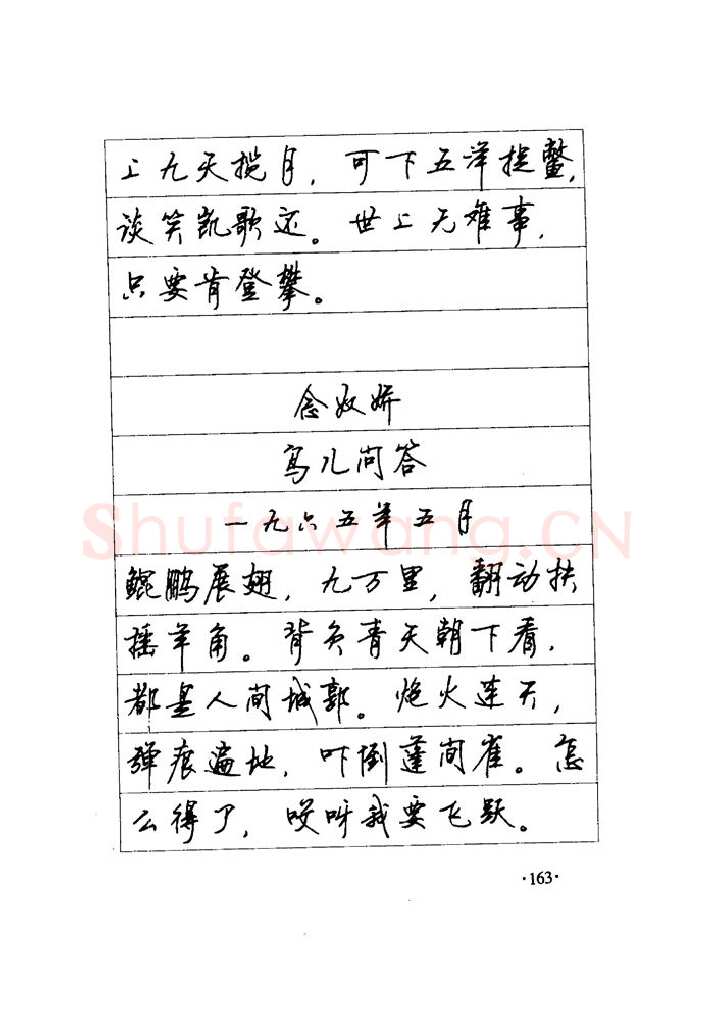 上九天揽月，可下五洋捉鳖，
谈笑凯歌还。世上无难事，
只要肯登攀。
念奴娇
鸟儿问答
一九六五年五月
Shufawang.CN
鲲鹏展翅，九万里，翻动扶
摇羊角。背负青天朝下看，
都是人间城郭。炮火连天，
弹痕遍地，吓倒蓬间雀。怎
么得了，哎呀我要飞跃。
·163·